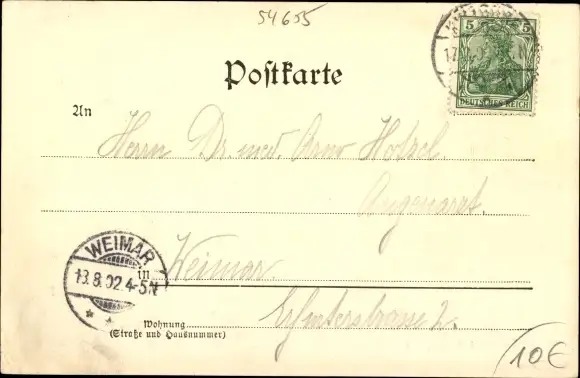 54655
5 5
DEUTSCHES REICH
Postkarte
An
Herrn Dr. med. Arno Hotzel
Augenarzt.
WEIMAR
13.8.02.4-5N
in Weimar
Erfurterstrasse 2.
Wohnung
(Straße und Hausnummer)
10€